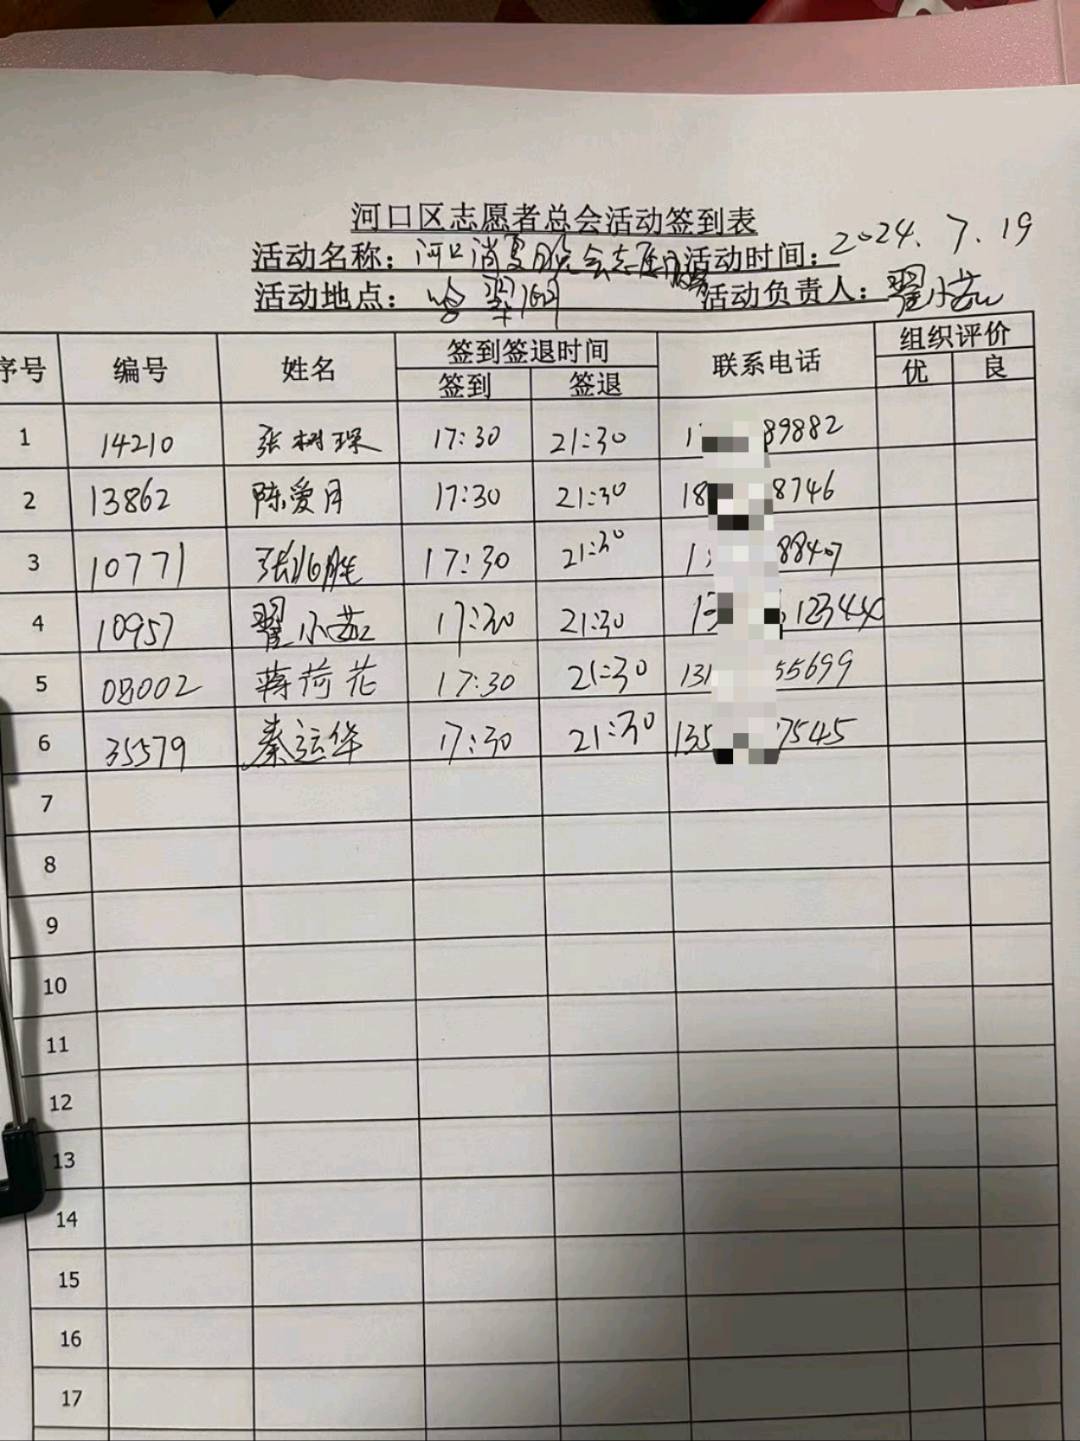 河口区志愿者总会活动签到表
活动名称：河口消夏晚会志愿服务 活动时间：2024.7.19
活动地点： 活动负责人：翟小茹
序号 编号 姓名 签到签退时间 联系电话 组织评价
签到 签退 优 良
1 14210 张树琛 17:30 21:30 1 89882
2 13862 陈爱月 17:30 21:30 18 8746
3 10771 张 胜 17:30 21:30 1 88407
4 10957 翟小茹 17:30 21:30 13 12344
5 08002 蒋荷花 17:30 21:30 131 55699
6 35579 秦运华 17:30 21:30 135 7545
7
8
9
10
11
12
13
14
15
16
17